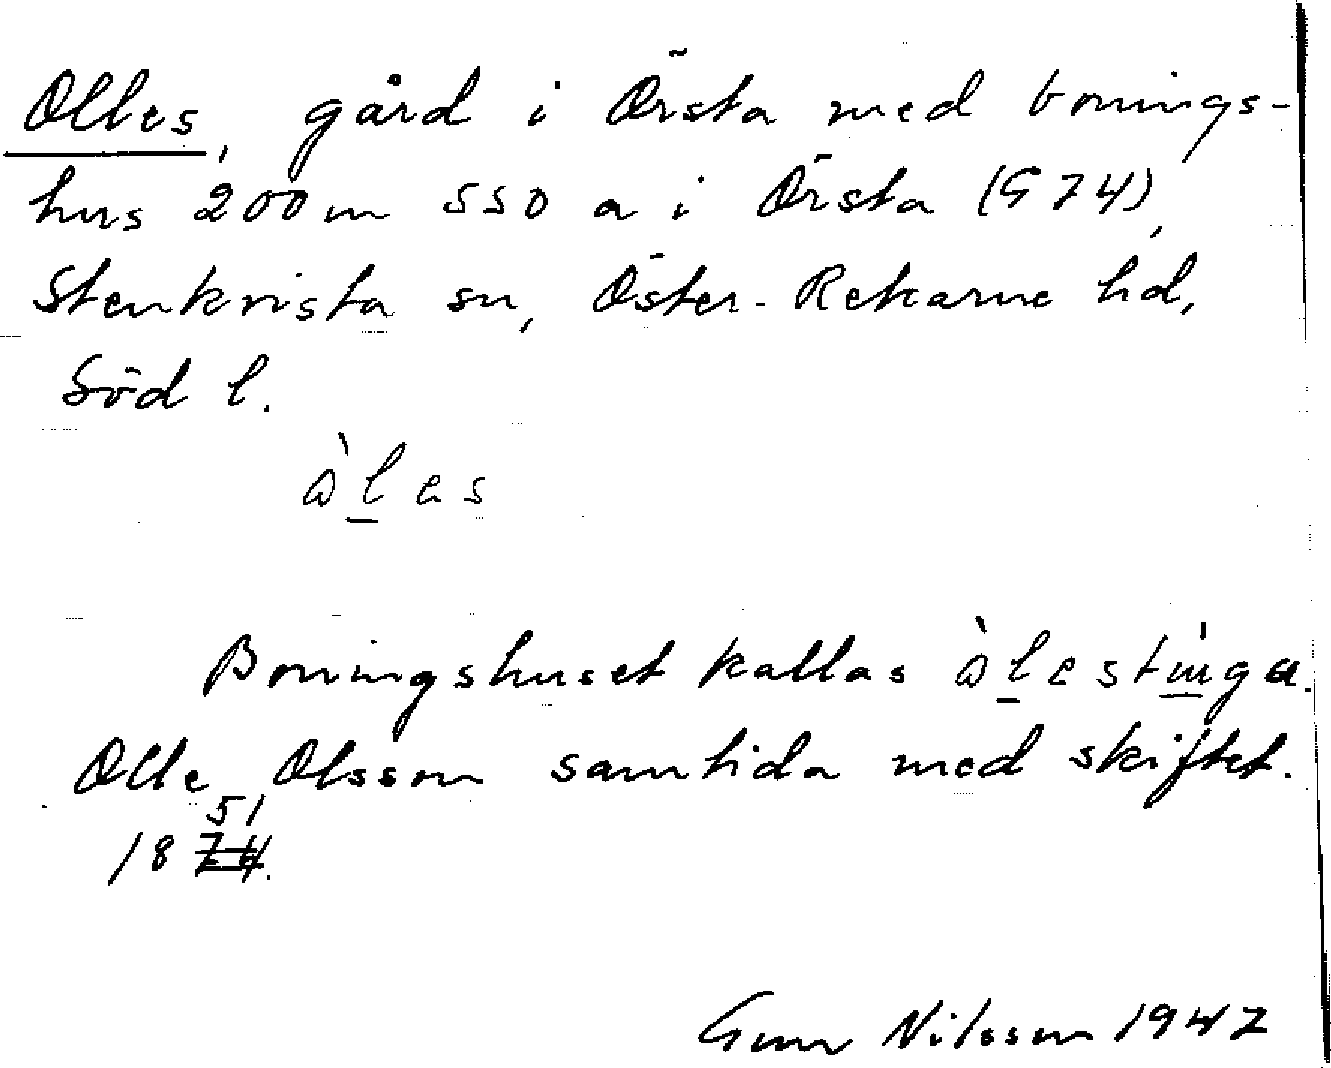 Olles, gård i Örsta med bonings-
hus 200 m SSO a i Örsta (G 74),
Stenkvista sn, Öster-Rekarne hd,
Söd l.
òl̲es
Boningshuset kallas òl̲esti̲nga.
Olle Olsson samtida med skiftet.
51
18 ~~74~~.
Gun Nilsson 1947